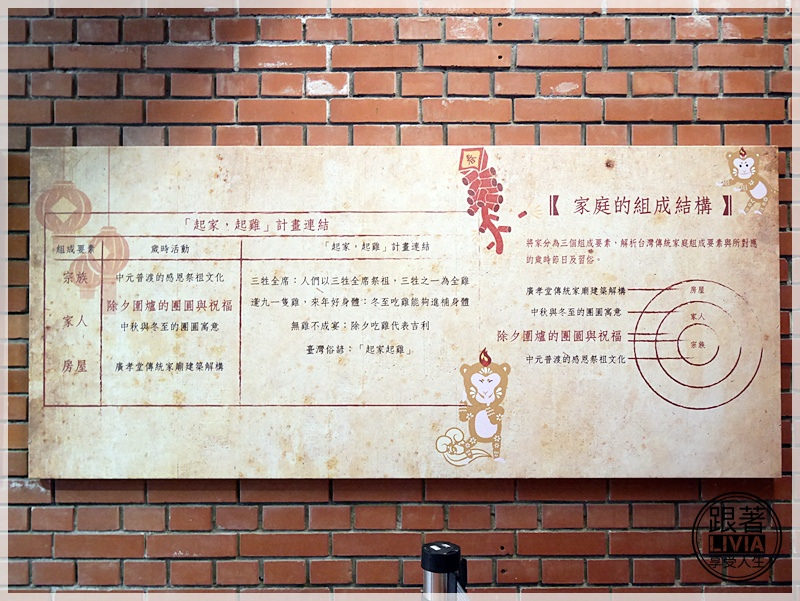 「起家，起雞」計畫連結
組成要素 歲時活動 「起家，起雞」計畫連結
宗族 中元普渡的感恩祭祖文化 三牲全席：人們以三牲全席祭祖，三牲之一為全雞
家人 除夕圍爐的團圓與祝福 逢九一隻雞，來年好身體：冬至吃雞能夠進補身體
中秋與冬至的團圓寓意 無雞不成宴：除夕吃雞代表吉利
臺灣俗諺：「起家起雞」
房屋 廣孝堂傳統家廟建築解構
【 家庭的組成結構 】
將家分為三個組成要素，解析台灣傳統家庭組成要素與所對應
的歲時節日及習俗。
廣孝堂傳統家廟建築解構 房屋
中秋與冬至的團圓寓意 家人
除夕圍爐的團圓與祝福
中元普渡的感恩祭祖文化 宗族
跟著
LIVIA
享受人生